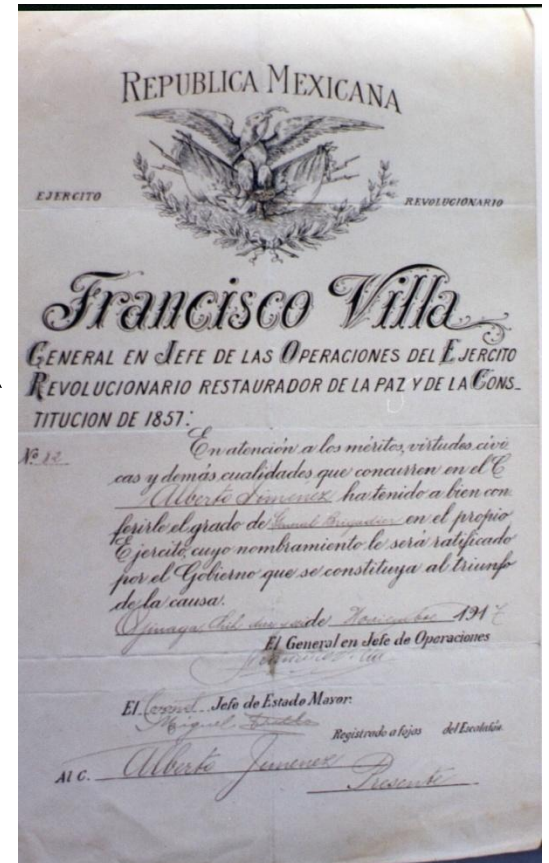 REPUBLICA MEXICANA
EJERCITO REVOLUCIONARIO
Francisco Villa
GENERAL EN JEFE DE LAS OPERACIONES DEL EJERCITO
REVOLUCIONARIO RESTAURADOR DE LA PAZ Y DE LA CONS-
TITUCION DE 1857:
En atención a los méritos, virtudes civi
No 12
cas y demás cualidades que concurren en el C
Alberto Jimenez ha tenido a bien con-
ferirle el grado de General Brigadier en el propio
Ejercito, cuyo nombramiento le será ratificado
por el Gobierno que se constituya al triunfo
de la causa.
Ojinaga Chih. de Noviembre 1917
El General en Jefe de Operaciones
El Jefe de Estado Mayor:
Miguel
Registrado a fojas del Escalafón.
Al C. Alberto Jimenez
Presente